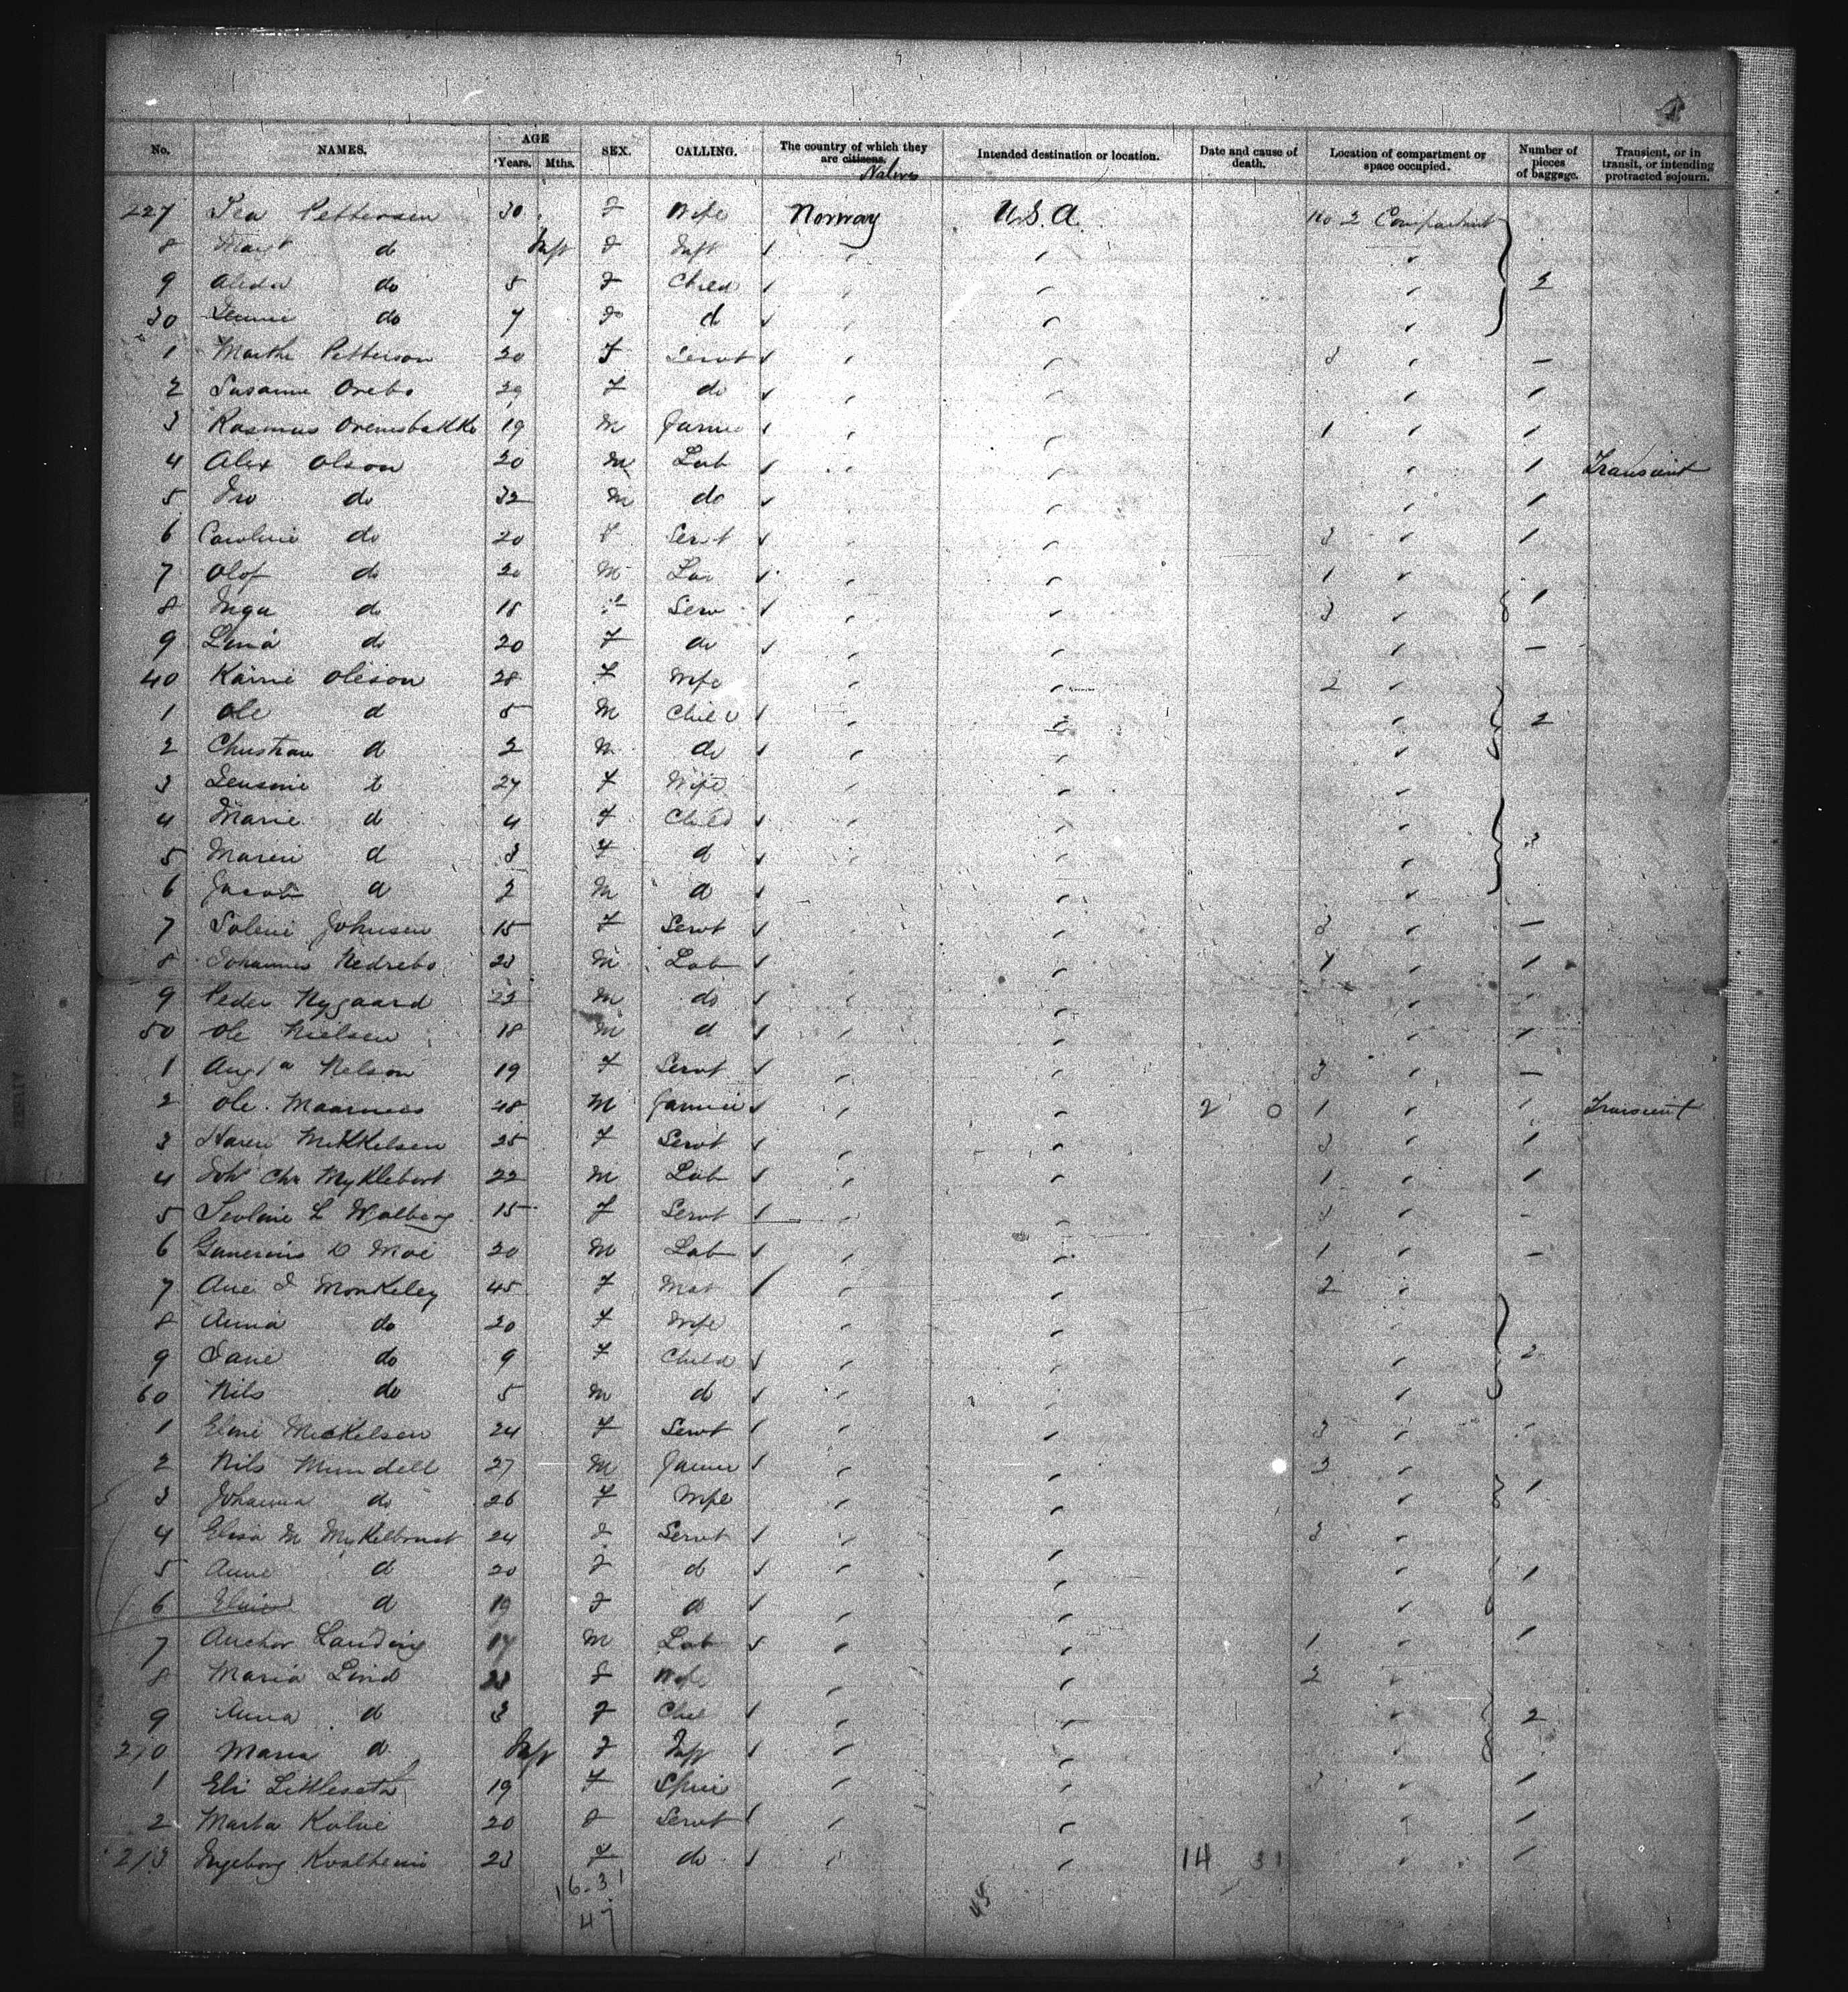 4
No. NAMES. AGE Years. Mths. SEX. CALLING. The country of which they are citizens. Natives Intended destination or location. Date and cause of death. Location of compartment or space occupied. Number of pieces of baggage. Transient, or in transit, or intending protracted sojourn.
227 Pettersen 30 F Wife Norway U.S.A. No 2 Compartment
8 Margt do Inft F Inft
9 Alida do 5 F Child 3
30 do 7 do d
1 Marthe Petterson 20 F Servt 3 —
2 Susanne Orebo 29 F do 1
3 Rasmus 19 M Farmer 1 1
4 Alex Olson 20 M Lab 1 Transient
5 Ivo do 32 M do 1
6 Caroline do 20 F Servt 3 1
7 Olof do 20 M Lab 1
8 Inga do 18 F Serv 3 1
9 Lina do 20 F do —
40 Karine Oleson 28 F Wife 2
1 Ole d 5 M Child 2
2 Christian d 2 M do
3 d 27 F Wife
4 Marie d 4 F Child
5 Maren d 3 F d 3
6 Jacob d 2 M d
7 Soline Johnsen 15 F Servt 3 —
8 Johannes Nedrebo 23 M Lab 1 1
9 Peder Nygaard 22 M do
50 Ole Nielsen 18 M d 1
1 Augta Nelson 19 F Servt 3 —
2 Ole 48 M Farmer 2 0 1 1 Transient
3 Karen Mikkelsen 25 F Servt 3 1
4 Joh Chr Myklebust 22 M Lab 1 1
5 L 15 F Servt 3 -
6 Moe 20 M Lab 1 —
7 Ane Monkeley 45 F Mat 2
8 Anna do 20 F Wife
9 Jane do 9 F Child 2
60 Nils do 5 M do
1 Eline Mickelsen 24 F Servt 3
2 Nils Mundell 27 M Farmer 2
3 Johanna do 26 F Wife 1
4 Elisa M Myklebust 24 F Servt 3
5 Anne d 20 F d 1
6 d 19 F d
7 Anchor Landing 17 M Lab 1 1
8 Maria Lind 23 F Wife 2
9 Anna d 3 F Chil 2
270 Maria d Inft F Inft
1 Eli Littleseth 19 F Spin 3 1
2 Marta Kolve 20 F Servt 1
273 Ingeborg Kvalheim 23 F do 14 31 1
16-31
47
48